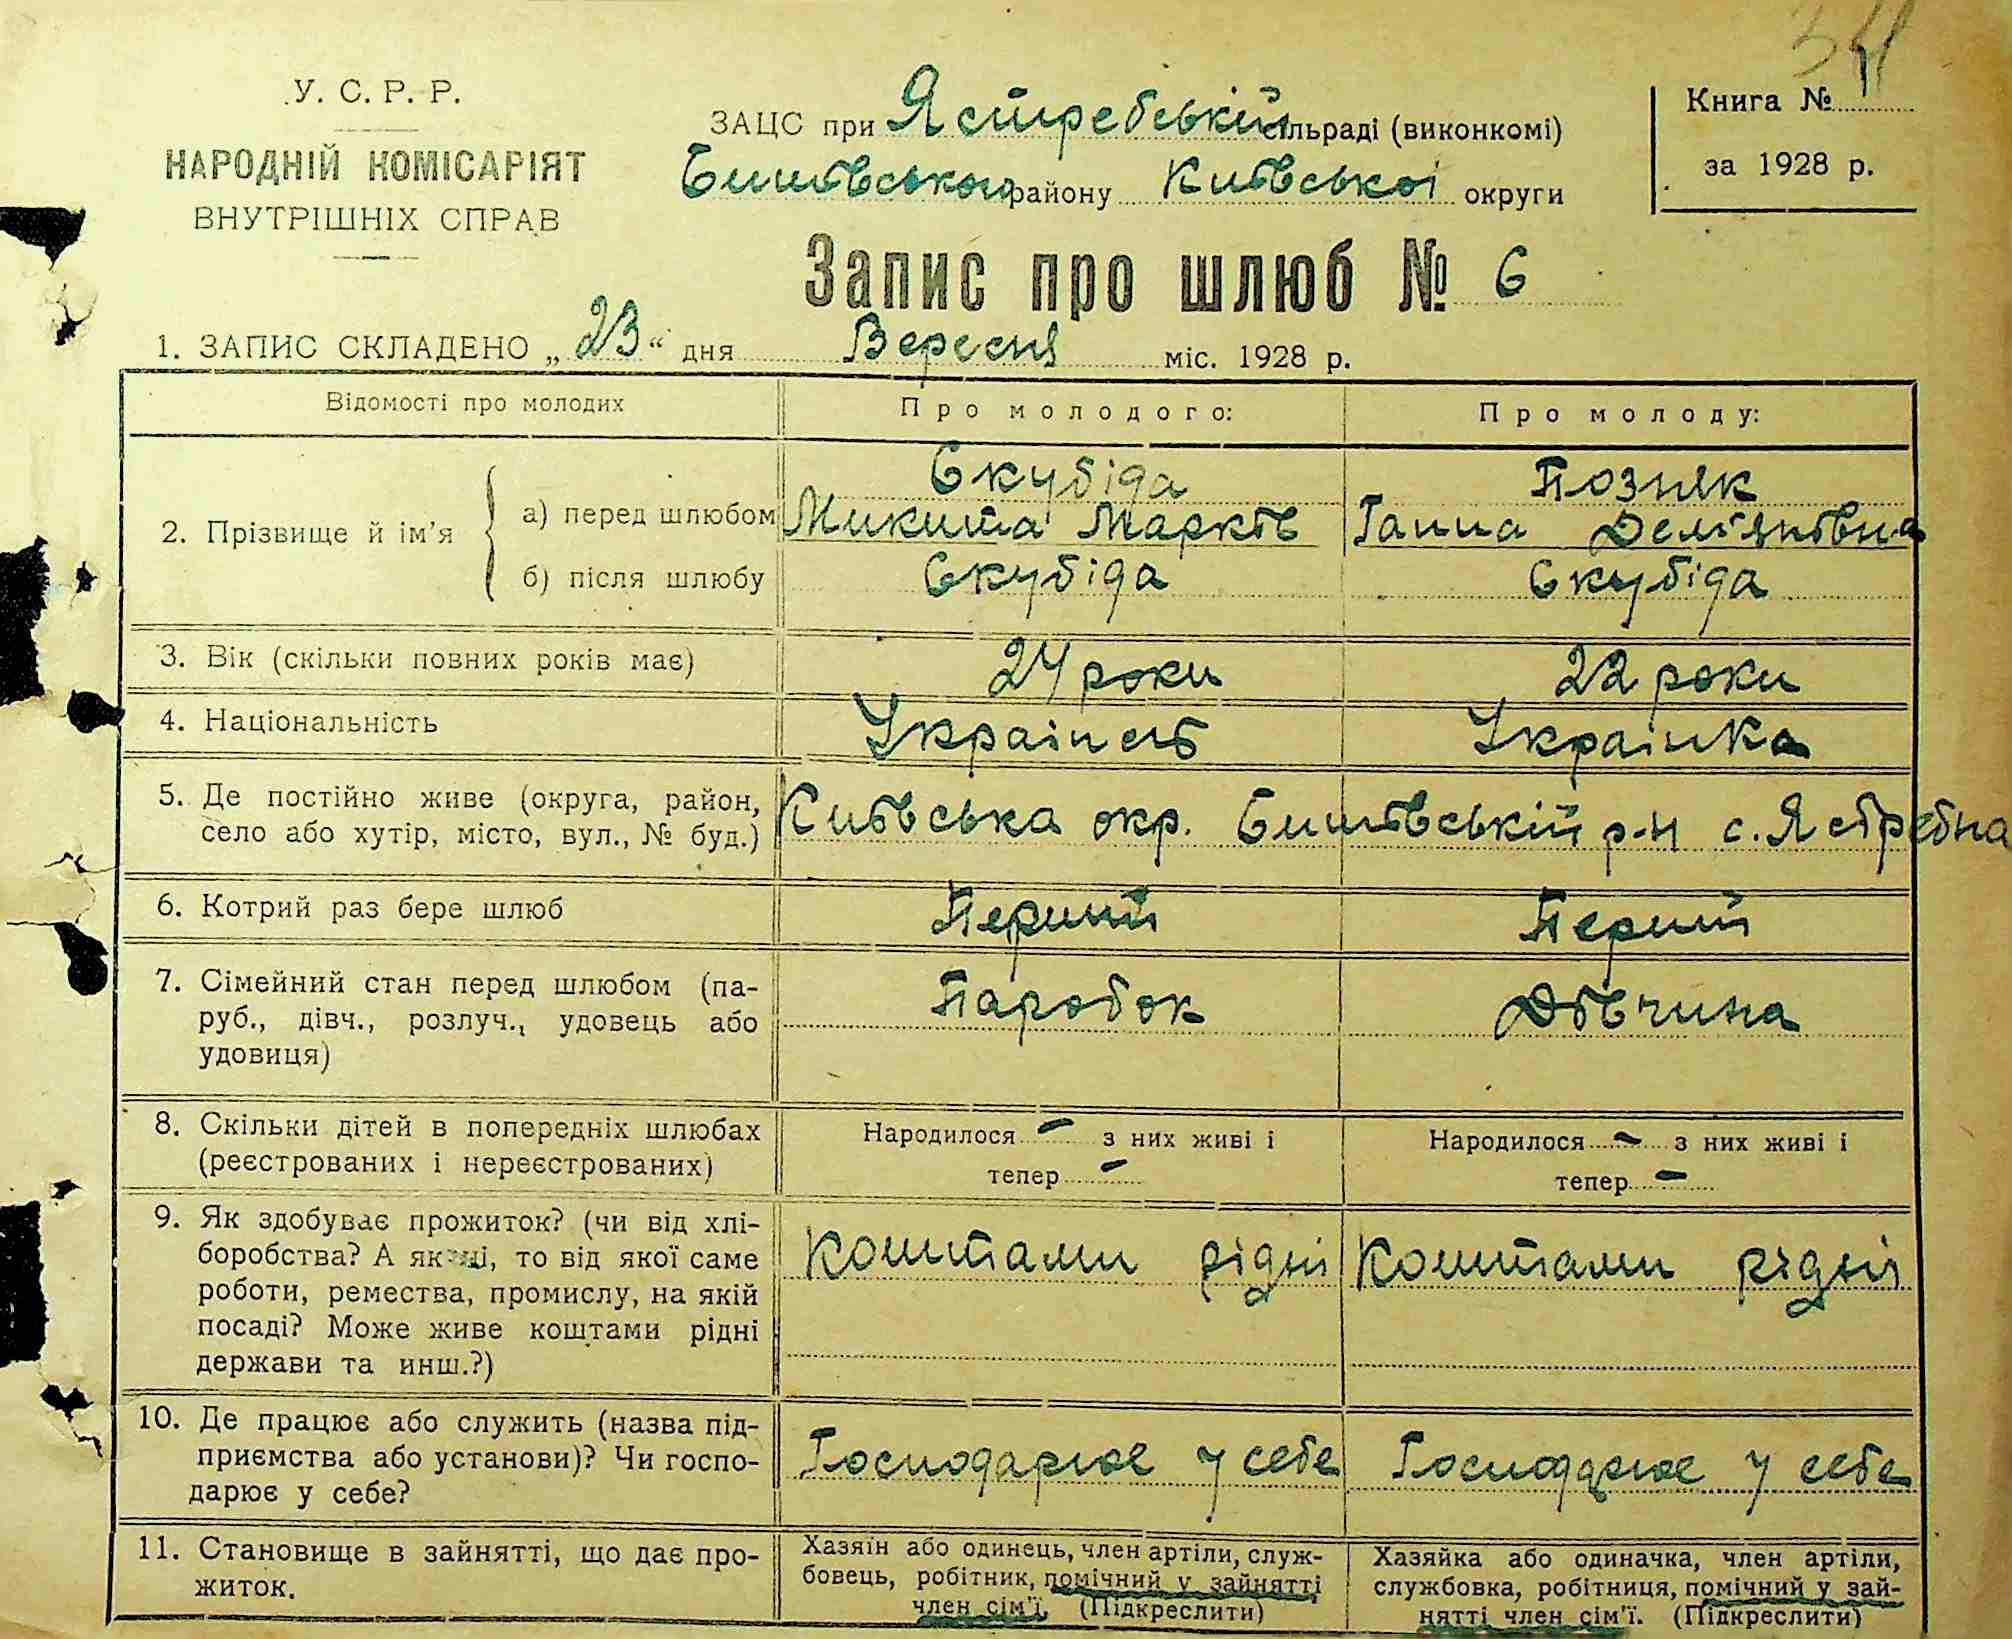 34
У. С. Р. Р.
НАРОДНІЙ КОМІСАРІЯТ
ВНУТРІШНІХ СПРАВ
ЗАЦС при Ястребській сільраді (виконкомі)
Бишівського району Київської округи
Книга №
за 1928 р.
Запис про шлюб № 6
1. ЗАПИС СКЛАДЕНО „ 23 “ дня Вересня міс. 1928 р.
Відомості про молодих
Про молодого:
Про молоду:
2. Прізвище й ім’я
а) перед шлюбом
Скубіда
Микита Марків
Позняк
Ганна Дем'янівна
б) після шлюбу
Скубіда
Скубіда
3. Вік (скільки повних років має)
24 роки
22 роки
4. Національність
Українець
Українка
5. Де постійно живе (округа, район,
село або хутір, місто, вул., № буд.)
Київська окр. Бишівській р-н с. Ястребна
6. Котрий раз бере шлюб
Перший
Перший
7. Сімейний стан перед шлюбом (па-
руб., дівч., розлуч., удовець або
удовиця)
Паробок
Дівчина
8. Скільки дітей в попередніх шлюбах
(реєстрованих і нереєстрованих)
Народилося – з них живі і
тепер –
Народилося – з них живі і
тепер –
9. Як здобуває прожиток? (чи від хлі-
боробства? А як ні, то від якої саме
роботи, ремества, промислу, на якій
посаді? Може живе коштами рідні
держави та инш.?)
Коштами рідні
Коштами рідні
10. Де працює або служить (назва під-
приємства або установи)? Чи госпо-
дарює у себе?
Господарює у себе
Господарює у себе
11. Становище в зайнятті, що дає про-
житок.
Хазяїн або одинець, член артіли, служ-
бовець, робітник, помічний у зайнятті
член сім'ї. (Підкреслити)
Хазяйка або одиначка, член артіли,
службовка, робітниця, помічний у зай-
нятті член сім'ї. (Підкреслити)